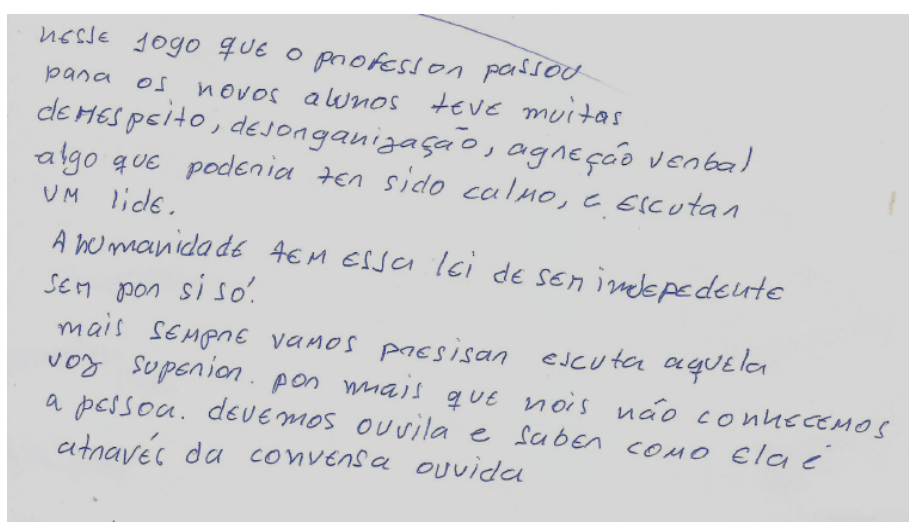 nesse jogo que o professor passou
para os novos alunos teve muitas
demespeito, desorganização, agreção verbal
algo que poderia ter sido calmo, e escutar
um lide.
A humanidade tem essa lei de ser indepedente
ser por si só!
mais sempre vamos presisar escuta aquela
voz superior. por mais que nois não conhecemos
a pessoa. devemos ouvila e saber como ela é
através da conversa ouvida